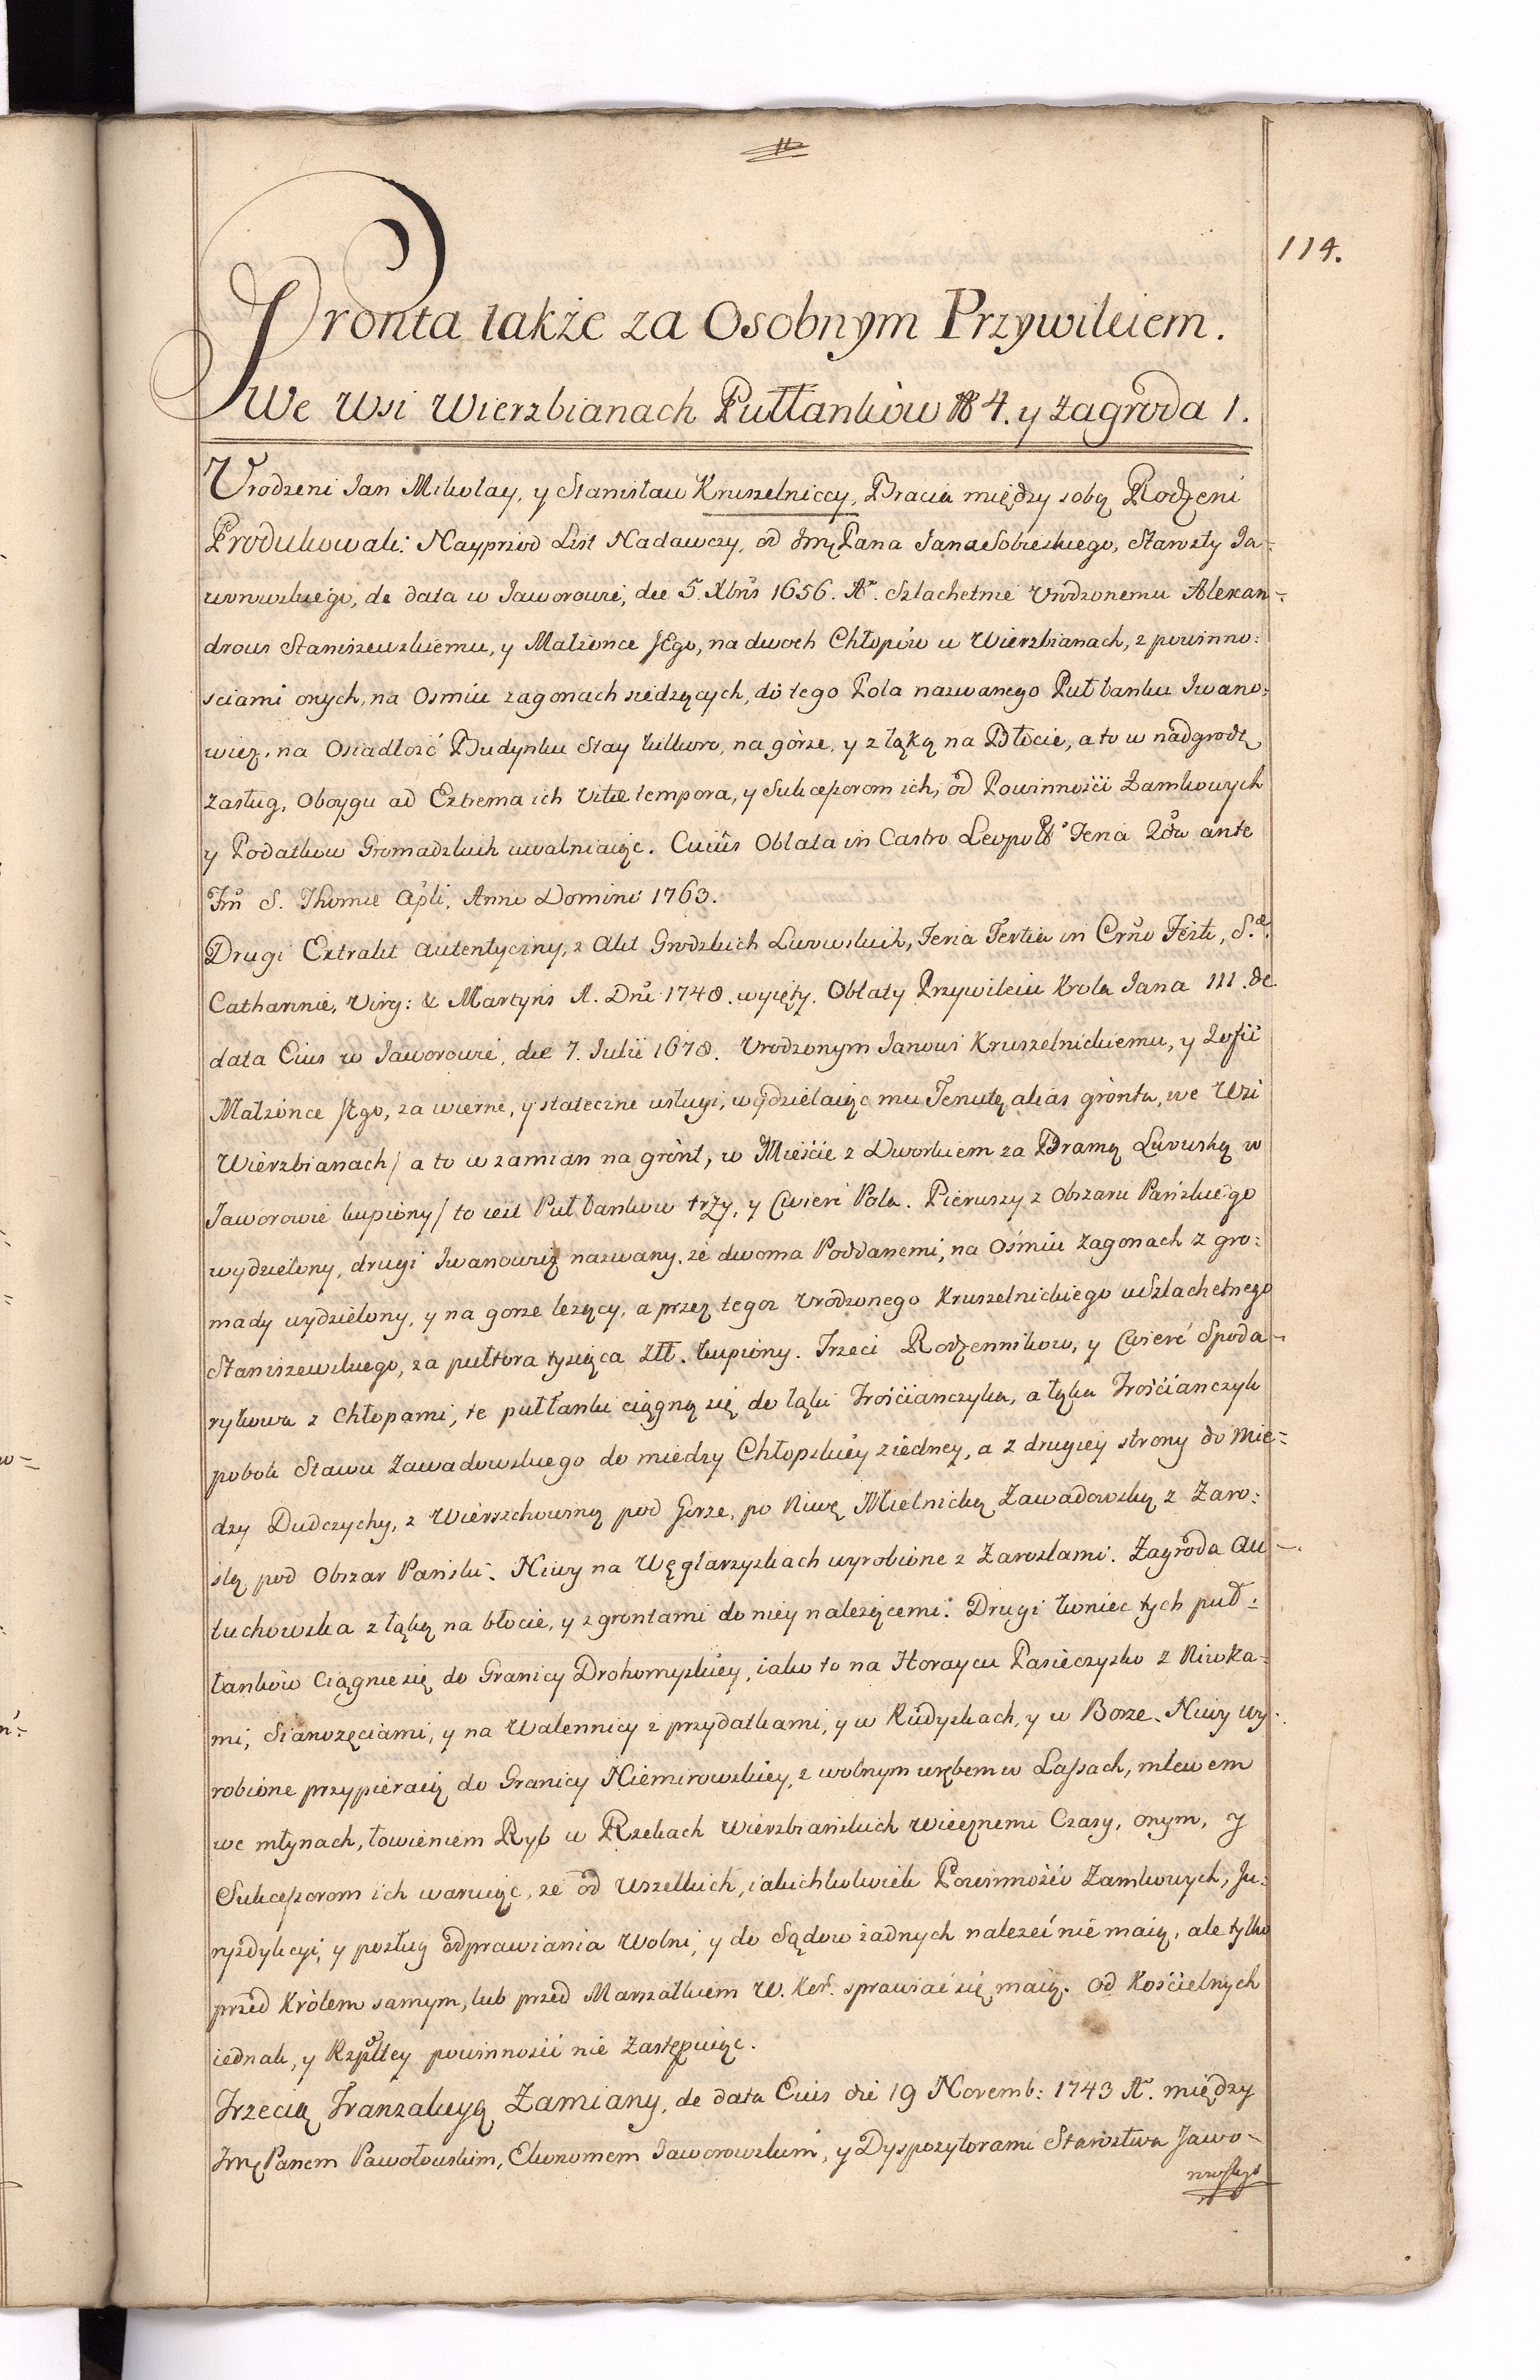 114.
Gronta także za Osobnym Przywileiem.
We Wsi Wierzbianach Pułłanków 4. y Zagroda 1.
Urodzeni Jan Mikołay, y Stanisław Kruszelniccy, Bracia między sobą Rodzeni
Produkowali: Nayprzod List Nadawczy, od Jmę Pana Jana Sobieskiego, Starosty Ja=
worowskiego, de data w Jaworowie, die 5. Xbris 1656. Aº. Szlachetnie Urodzonemu Alexan=
drowi Staniszewskiemu, y Małżonce JEgo, na dwoch Chłopów w Wierzbianach, z powinno:
sciami onych, na Osmiu zagonach siedzących, do tego Pola nazwanego Pułłanku Iwano:
wicz, na Osiadłość Budynku Stay kilkoro, na górze, y z łąką na Błocie, a to w nadgrodę
zasług, Oboygu ad Extrema ich Vitæ tempora, y Sukcessorom ich, od Powinności Zamkowych
y Podatkow Gromadzkich uwalniaiąc. Cuius Oblata in Castro Leopol: Feria 2da ante
Fm S. Thomæ Apli, Anno Domini 1763.
Drugi Extrakt autentyczny, z Akt Grodzkich Lwowskich, Feria Tertia in Crno Festi, S.æ
Catharinæ, Virg: & Martyris A. Dni 1748. wyięty. Oblaty Przywileiu Krola Jana III. de
data Eius w Jaworowie, die 7. Julii 1678. Urodzonym Janowi Kruszelnickiemu, y Zofii
Małżonce JEgo, za wierne, y stateczne usługi, wydzielaiąc mu Tenutę alias gronta, we Wsi
Wierzbianach / a to w zamian na gront, w Mieście z Dworkiem za Bramą Lwowską w
Jaworowie kupiony / to iest Pułłankow trzy, y Cwierć Pola. Pierwszy z Obszaru Pańskiego
wydzielony, drugi Iwanowicz nazwany, ze dwoma Poddanemi, na Ośmiu Zagonach z gro:
mady wydzielony, y na gorze leżący, a przez tegoz Urodzonego Kruszelnickiego u Szlachetnego
Staniszewskiego, za pułtora tysiąca Złł. kupiony. Trzeci Rodzennikow, y Cwierć Spoda=
rykowa z Chłopami, te pułłanki ciągną się do łąki Trościanczyka, a łąka Trościanczyk
pobok Stawu Zawadowskiego do miedzy Chłopskiey ziedney, a z drugiey strony do Mie=
dzy Dudczychy, z Wierszchowiną pod Gorze, po Niwę Mielnicką Zawadowską z Zaro:
slą pod Obszar Pański. Niwy na Węglarzyskach wyrobione z Zaroslami. Zagroda Au=
tuchowska z łąką na błocie, y z grontami do niey nalezącemi. Drugi koniec tych puł:
łankow Ciągnie się do Granicy Drohomyskiey, iako to na Horaycu Pasieczysko z Niwka=
mi, Sianozęciami, y na Walennicy z przydatkami, y w Rudyskach, y w Borze. Niwy wy:
robione przypieraią do Granicy Niemirowskiey, z wolnym wrębem w Lassach, mlewem
we młynach, łowieniem Ryb w Rzekach Wierzbiańskich wiecznemi Czasy, onym, y
Sukcessorom ich waruiąc, ze od Wszelkich, iakichkolwiek Powinności Zamkowych, Ju:
ryzdykcyi, y posług odprawiania Wolni, y do Sądow żadnych nalezeć nie maią, ale tylko
przed Królem samym, lub przed Marszałkiem W. Kor. sprawiać się maią. Od Kościelnych
iednak, y Rzpltey powinności nie Zastępuiąc.
Trzecią Tranzakcyą Zamiany, de data Eius die 19 Novemb: 1743 Aº. między
Jmę Panem Pawołowskim, Ekonomem Jaworowskim, y Dyspozytorami Starostwa Jawo=
rowskego